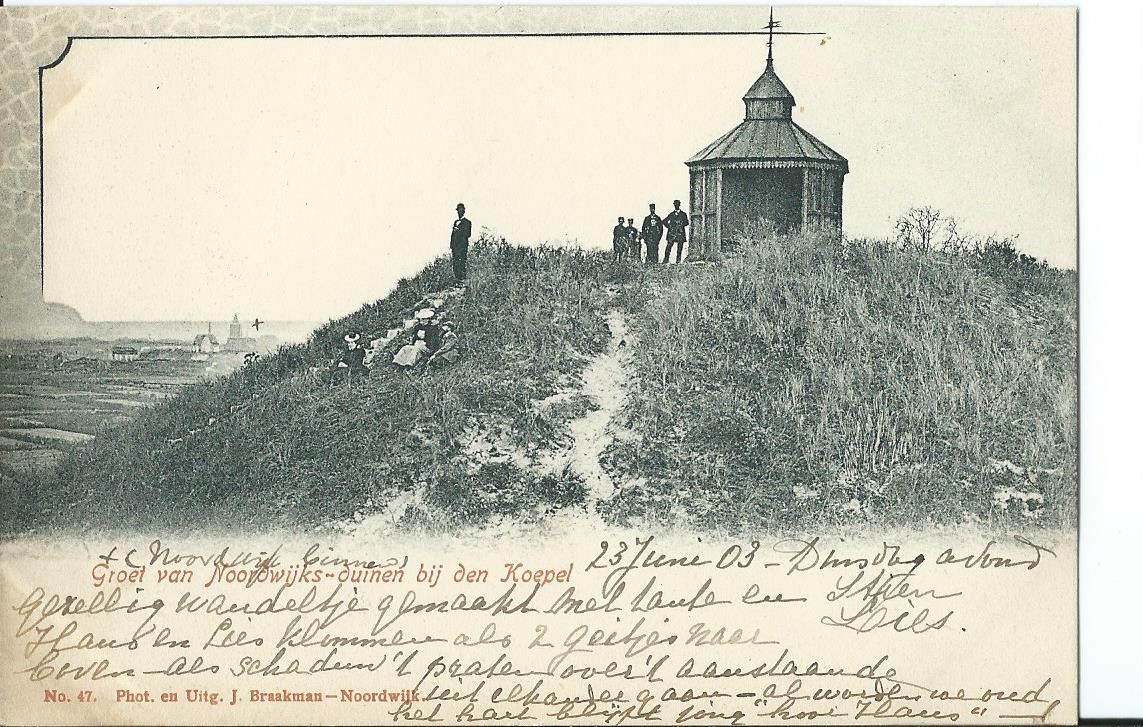 + (Noordwijk binnen)
Groet van Noordwijks-duinen bij den Koepel
23 Juni 03 - Dinsdag avond
Gezellig wandeltje gemaakt met tante en Stien
Hans en Lies klommen als 2 geitjes naar Lies.
boven - als schaduw 't praten over 't aanstaande
No. 47. Phot. en Uitg. J. Braakman — Noordwijk.
uit elkander gaan - al worden we oud
het hart blijft jong "hoor Hans" -